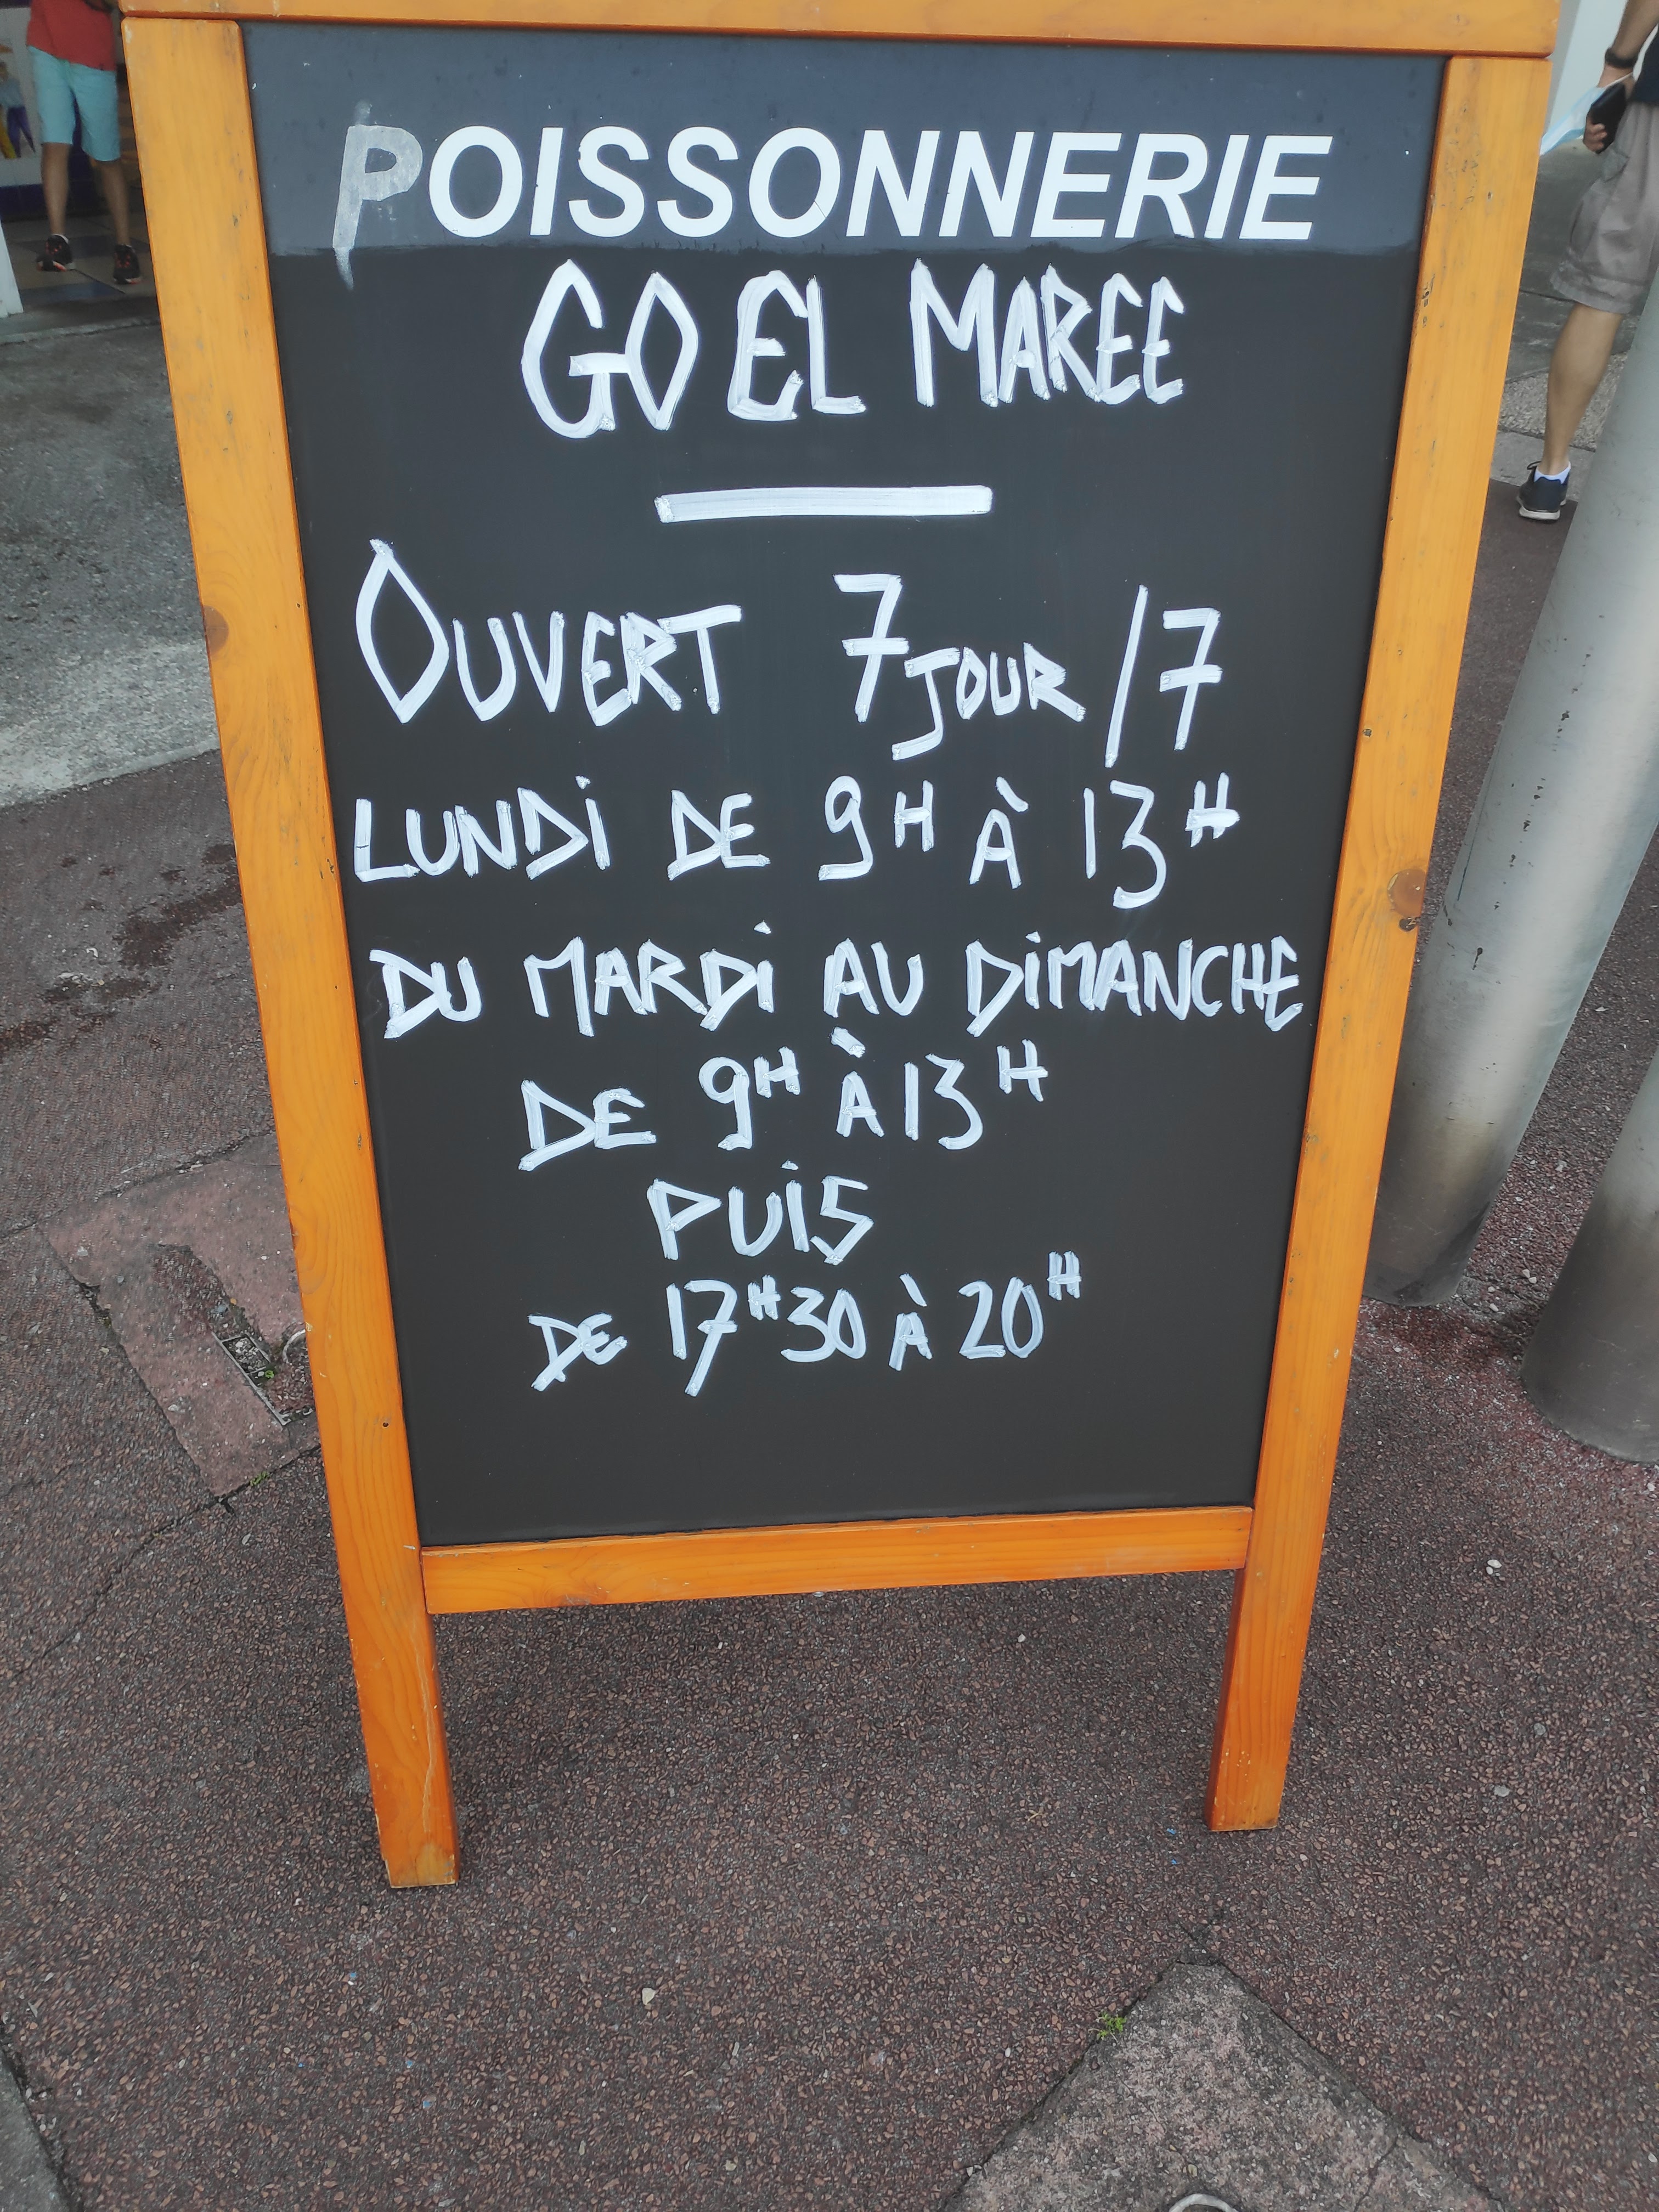 POISSONNERIE
GOEL MAREE
OUVERT 7 JOUR /7
LUNDI DE 9H À 13H
DU MARDI AU DIMANCHE
DE 9H À 13H
PUIS
DE 17H30 À 20H